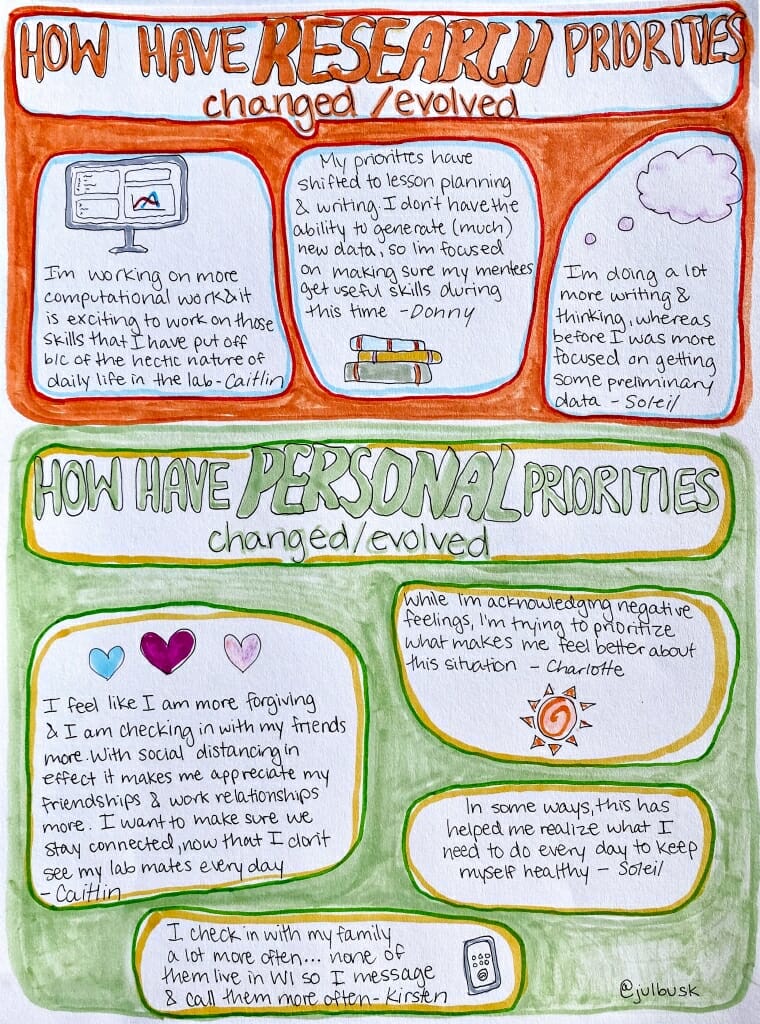 HOW HAVE RESEARCH PRIORITIES
changed / evolved
I'm working on more
computational work & it
is exciting to work on those
skills that I have put off
b/c of the hectic nature of
daily life in the lab - Caitlin
My priorities have
shifted to lesson planning
& writing. I don't have the
ability to generate (much)
new data, so I'm focused
on making sure my mentees
get useful skills during
this time - Donny
I'm doing a lot
more writing &
thinking, whereas
before I was more
focused on getting
some preliminary
data - Soleil
HOW HAVE PERSONAL PRIORITIES
changed/evolved
I feel like I am more forgiving
& I am checking in with my friends
more. With social distancing in
effect it makes me appreciate my
friendships & work relationships
more. I want to make sure we
stay connected, now that I don't
see my lab mates every day
- Caitlin
While I'm acknowledging negative
feelings, I'm trying to prioritize
what makes me feel better about
this situation - Charlotte
In some ways, this has
helped me realize what I
need to do every day to keep
myself healthy - Soleil
I check in with my family
a lot more often... none of
them live in WI so I message
& call them more often - Kirsten
@julbusk